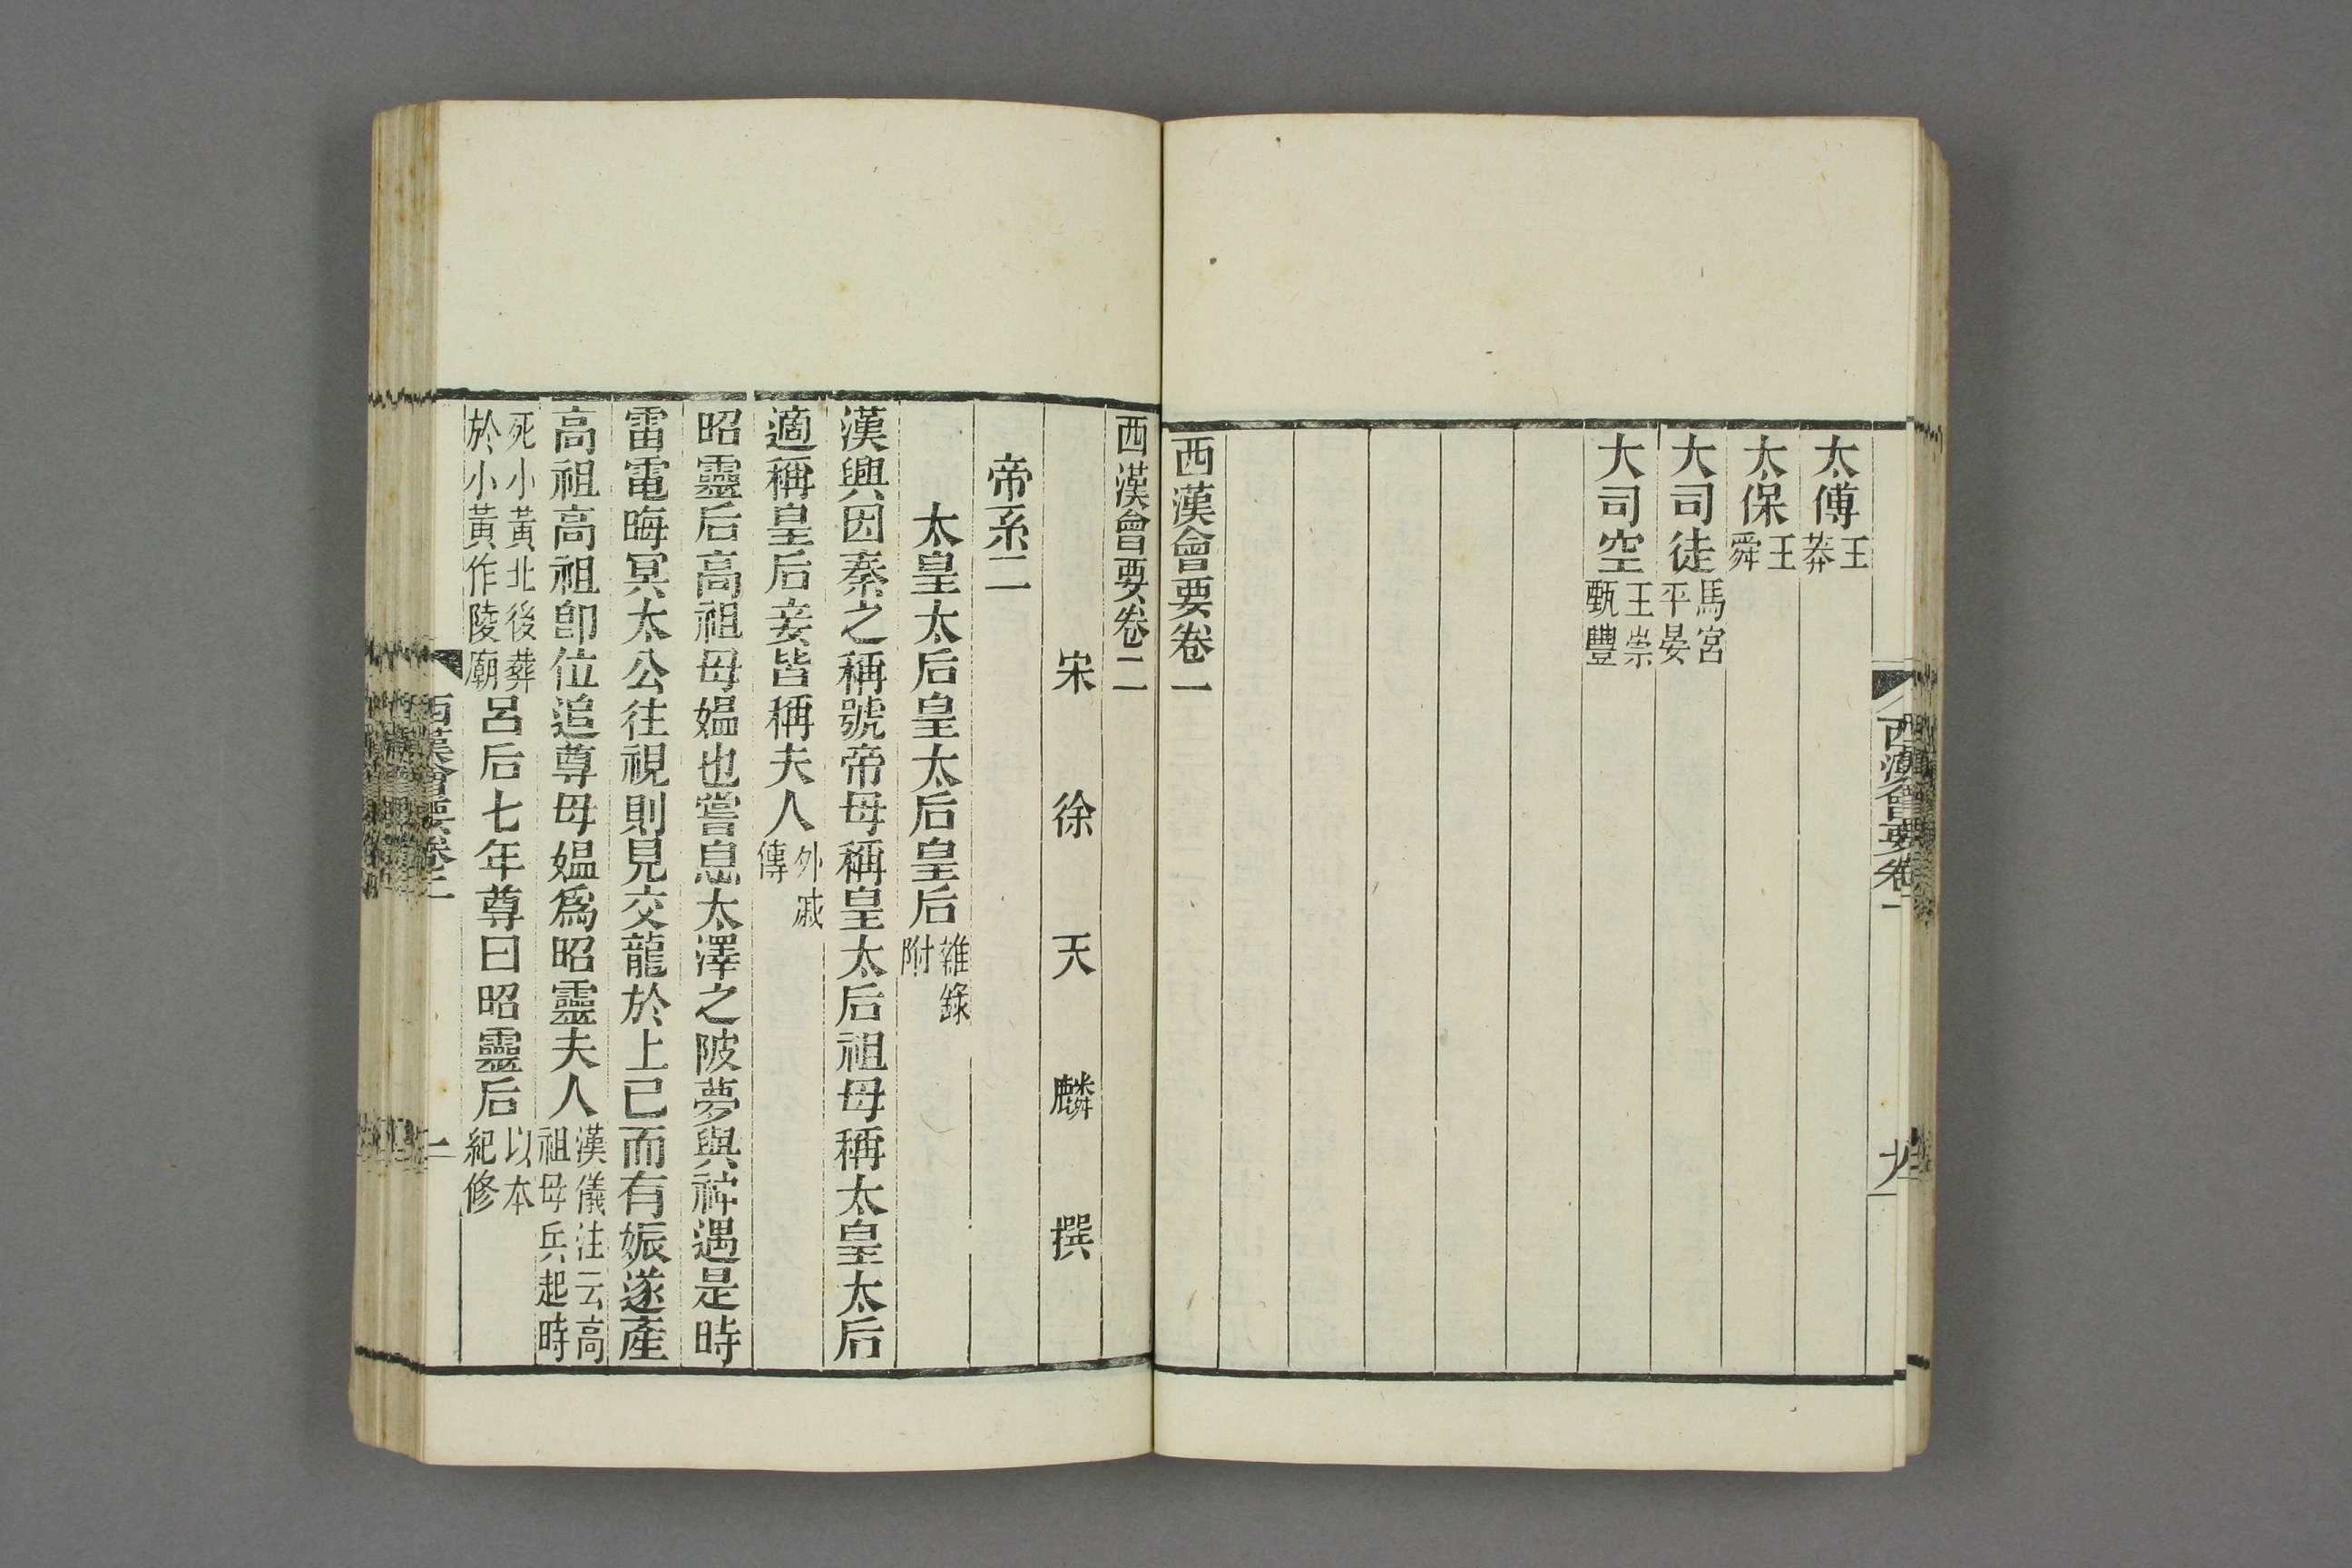 太傅王莽
太保王舜
大司徒馬宮平晏
大司空王崇甄豐
西漢會要卷一
西漢會要卷二
宋徐天麟撰
帝系二
太皇太后皇太后皇后雜錄附
漢興因秦之稱號帝母稱皇太后祖母稱太皇太后
適稱皇后妾皆稱夫人外戚傳
昭靈后高祖母媼也嘗息太澤之陂夢與神遇是時
雷電晦冥太公往視則見交龍於上已而有娠遂產
高祖高祖卽位追尊母媼爲昭靈夫人漢儀注云高祖母兵起時
死小黃北後葬於小黃作陵廟呂后七年尊曰昭靈后以本紀修
西漢會要卷二